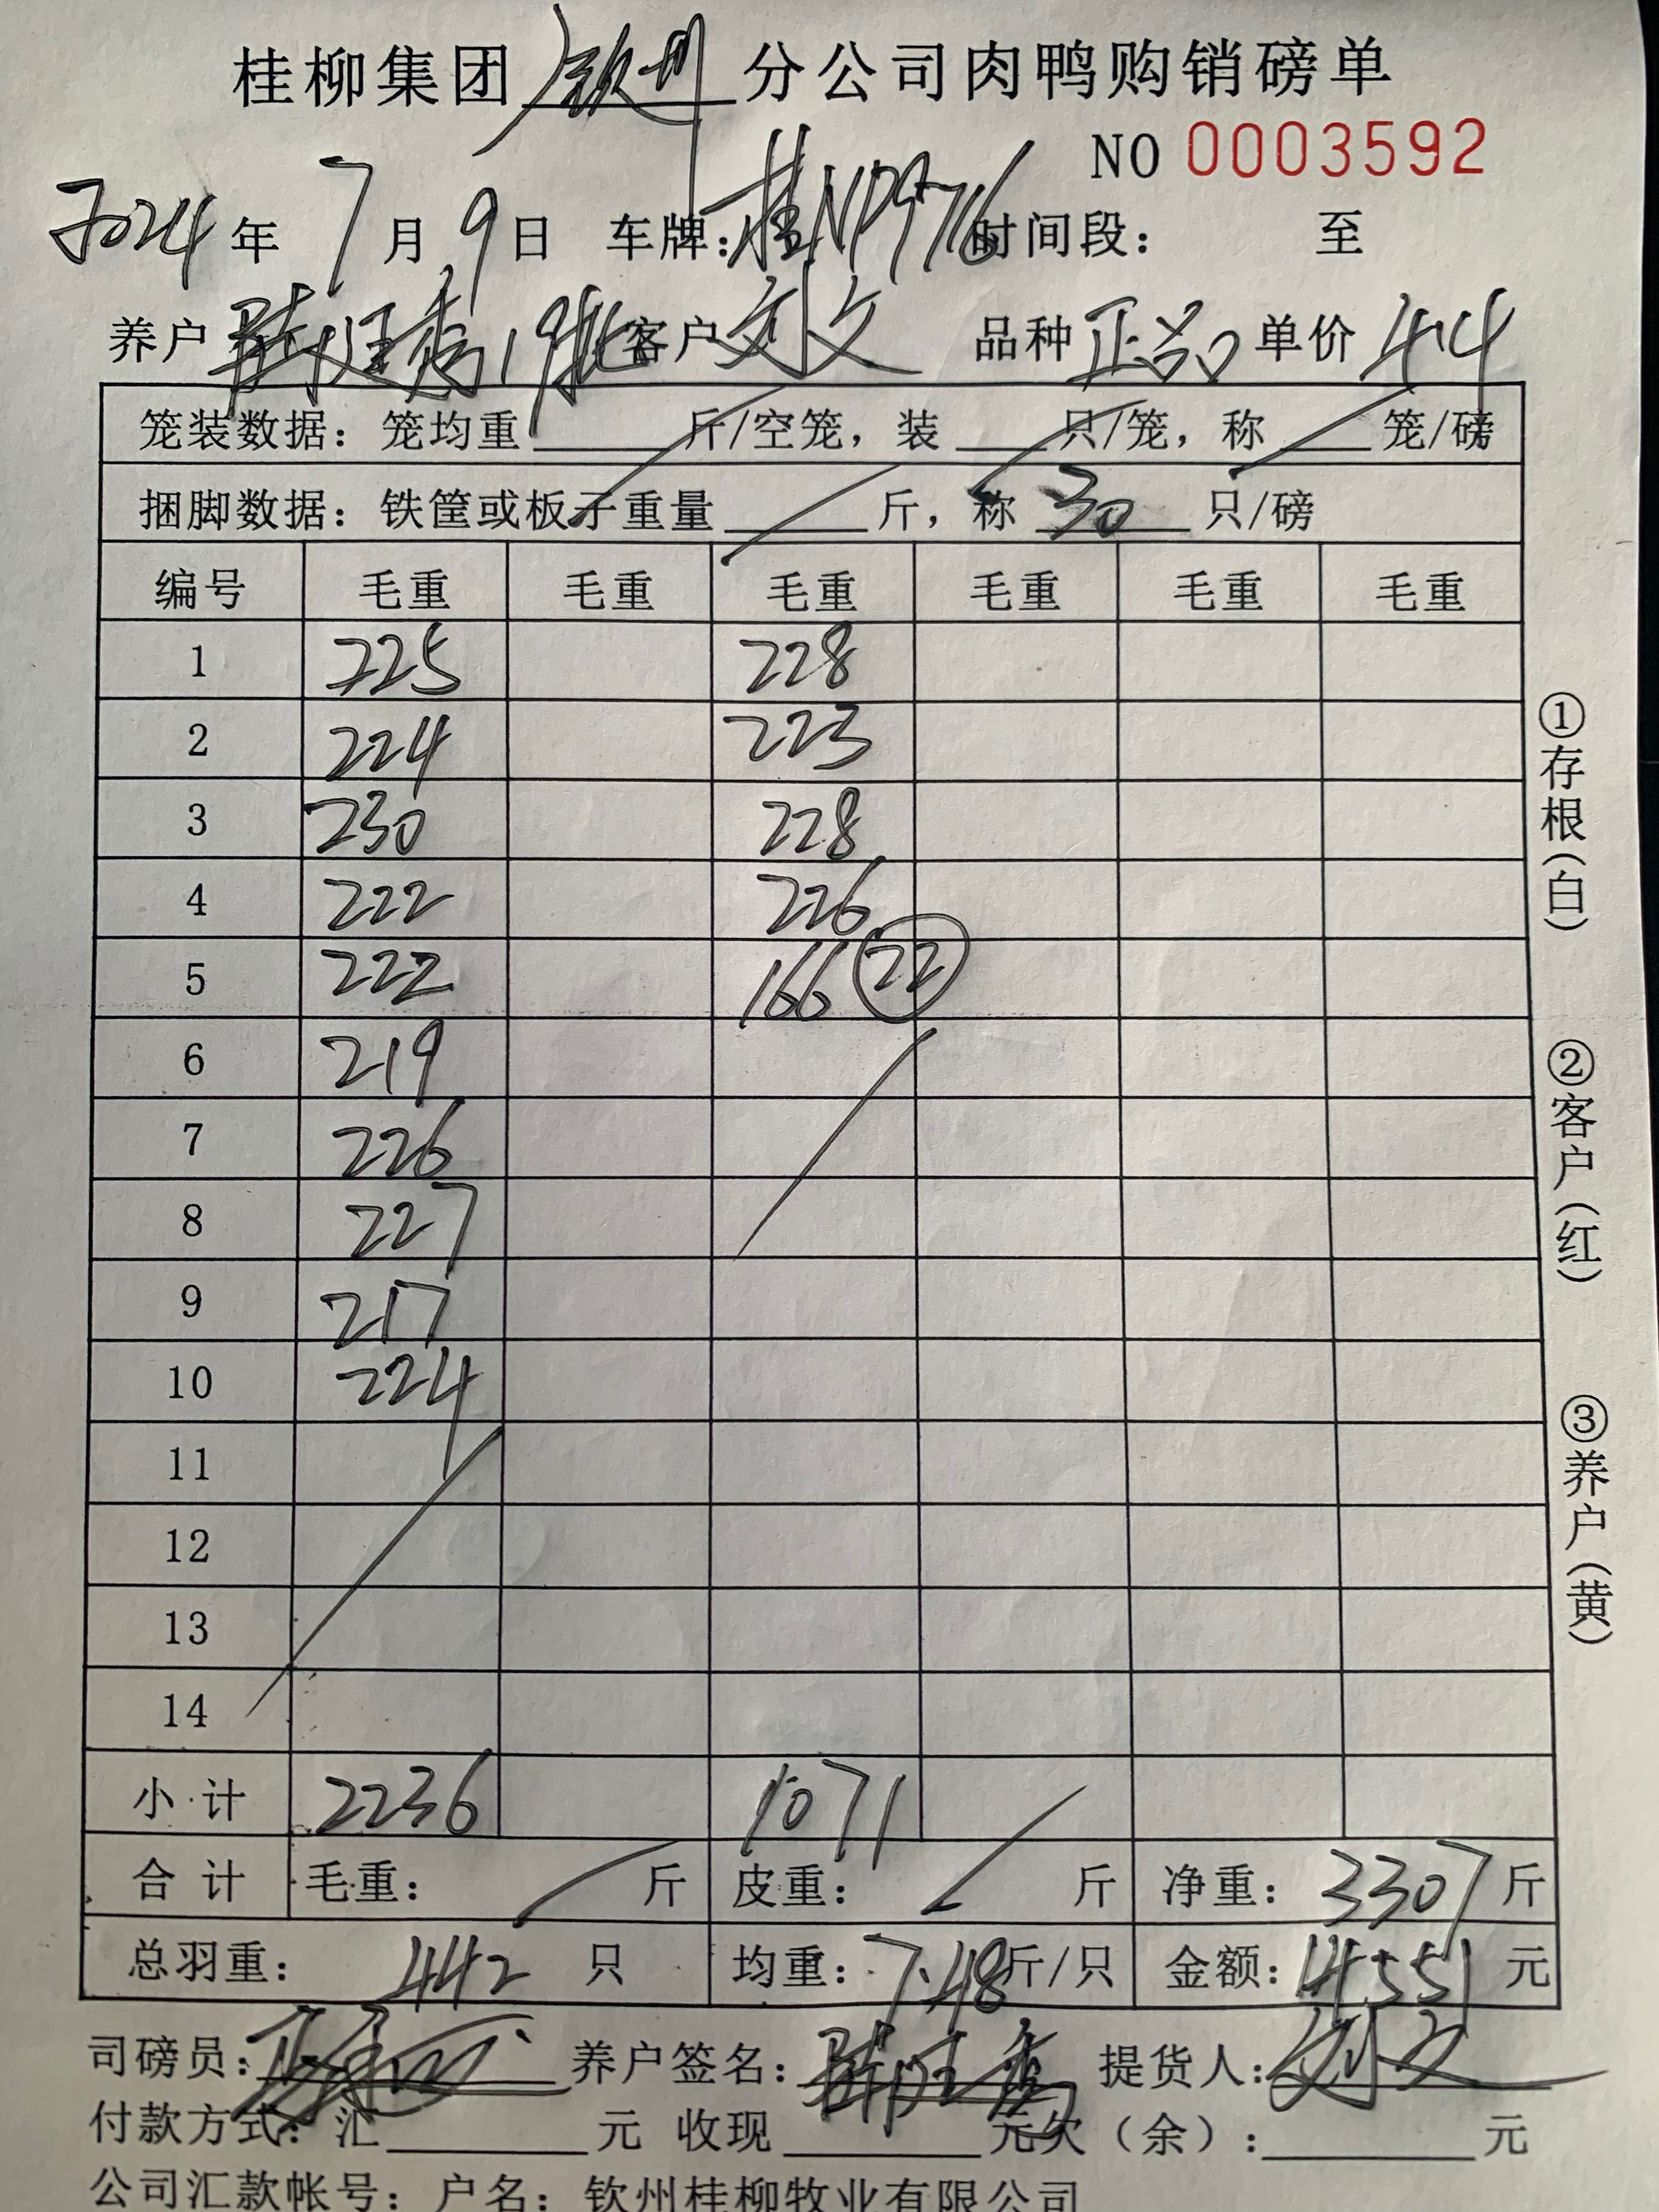 桂柳集团钦州分公司肉鸭购销磅单
NO 0003592
2024年7月9日 车牌:桂NP9716 时间段: 至
养户 19批 客户 刘文 品种 正品 单价 4.4
笼装数据: 笼均重 斤/空笼, 装 只/笼, 称 笼/磅
捆脚数据: 铁筐或板子重量 斤, 称 30 只/磅
编号 毛重 毛重 毛重 毛重 毛重 毛重
1 225 228
2 224 223
3 230 228
4 222 226
5 222 166 22
6 219
7 226
8 227
9 217
10 224
11
12
13
14
小计 2236 1071
合计 毛重: 斤 皮重: 斤 净重: 3307 斤
总羽重: 442 只 均重: 7.48 斤/只 金额: 14551 元
司磅员: 养户签名: 提货人: 刘文
付款方式: 汇 元 收现 元 欠(余): 元
公司汇款帐号: 户名: 钦州桂柳牧业有限公司
①存根(白)
②客户(红)
③养户(黄)